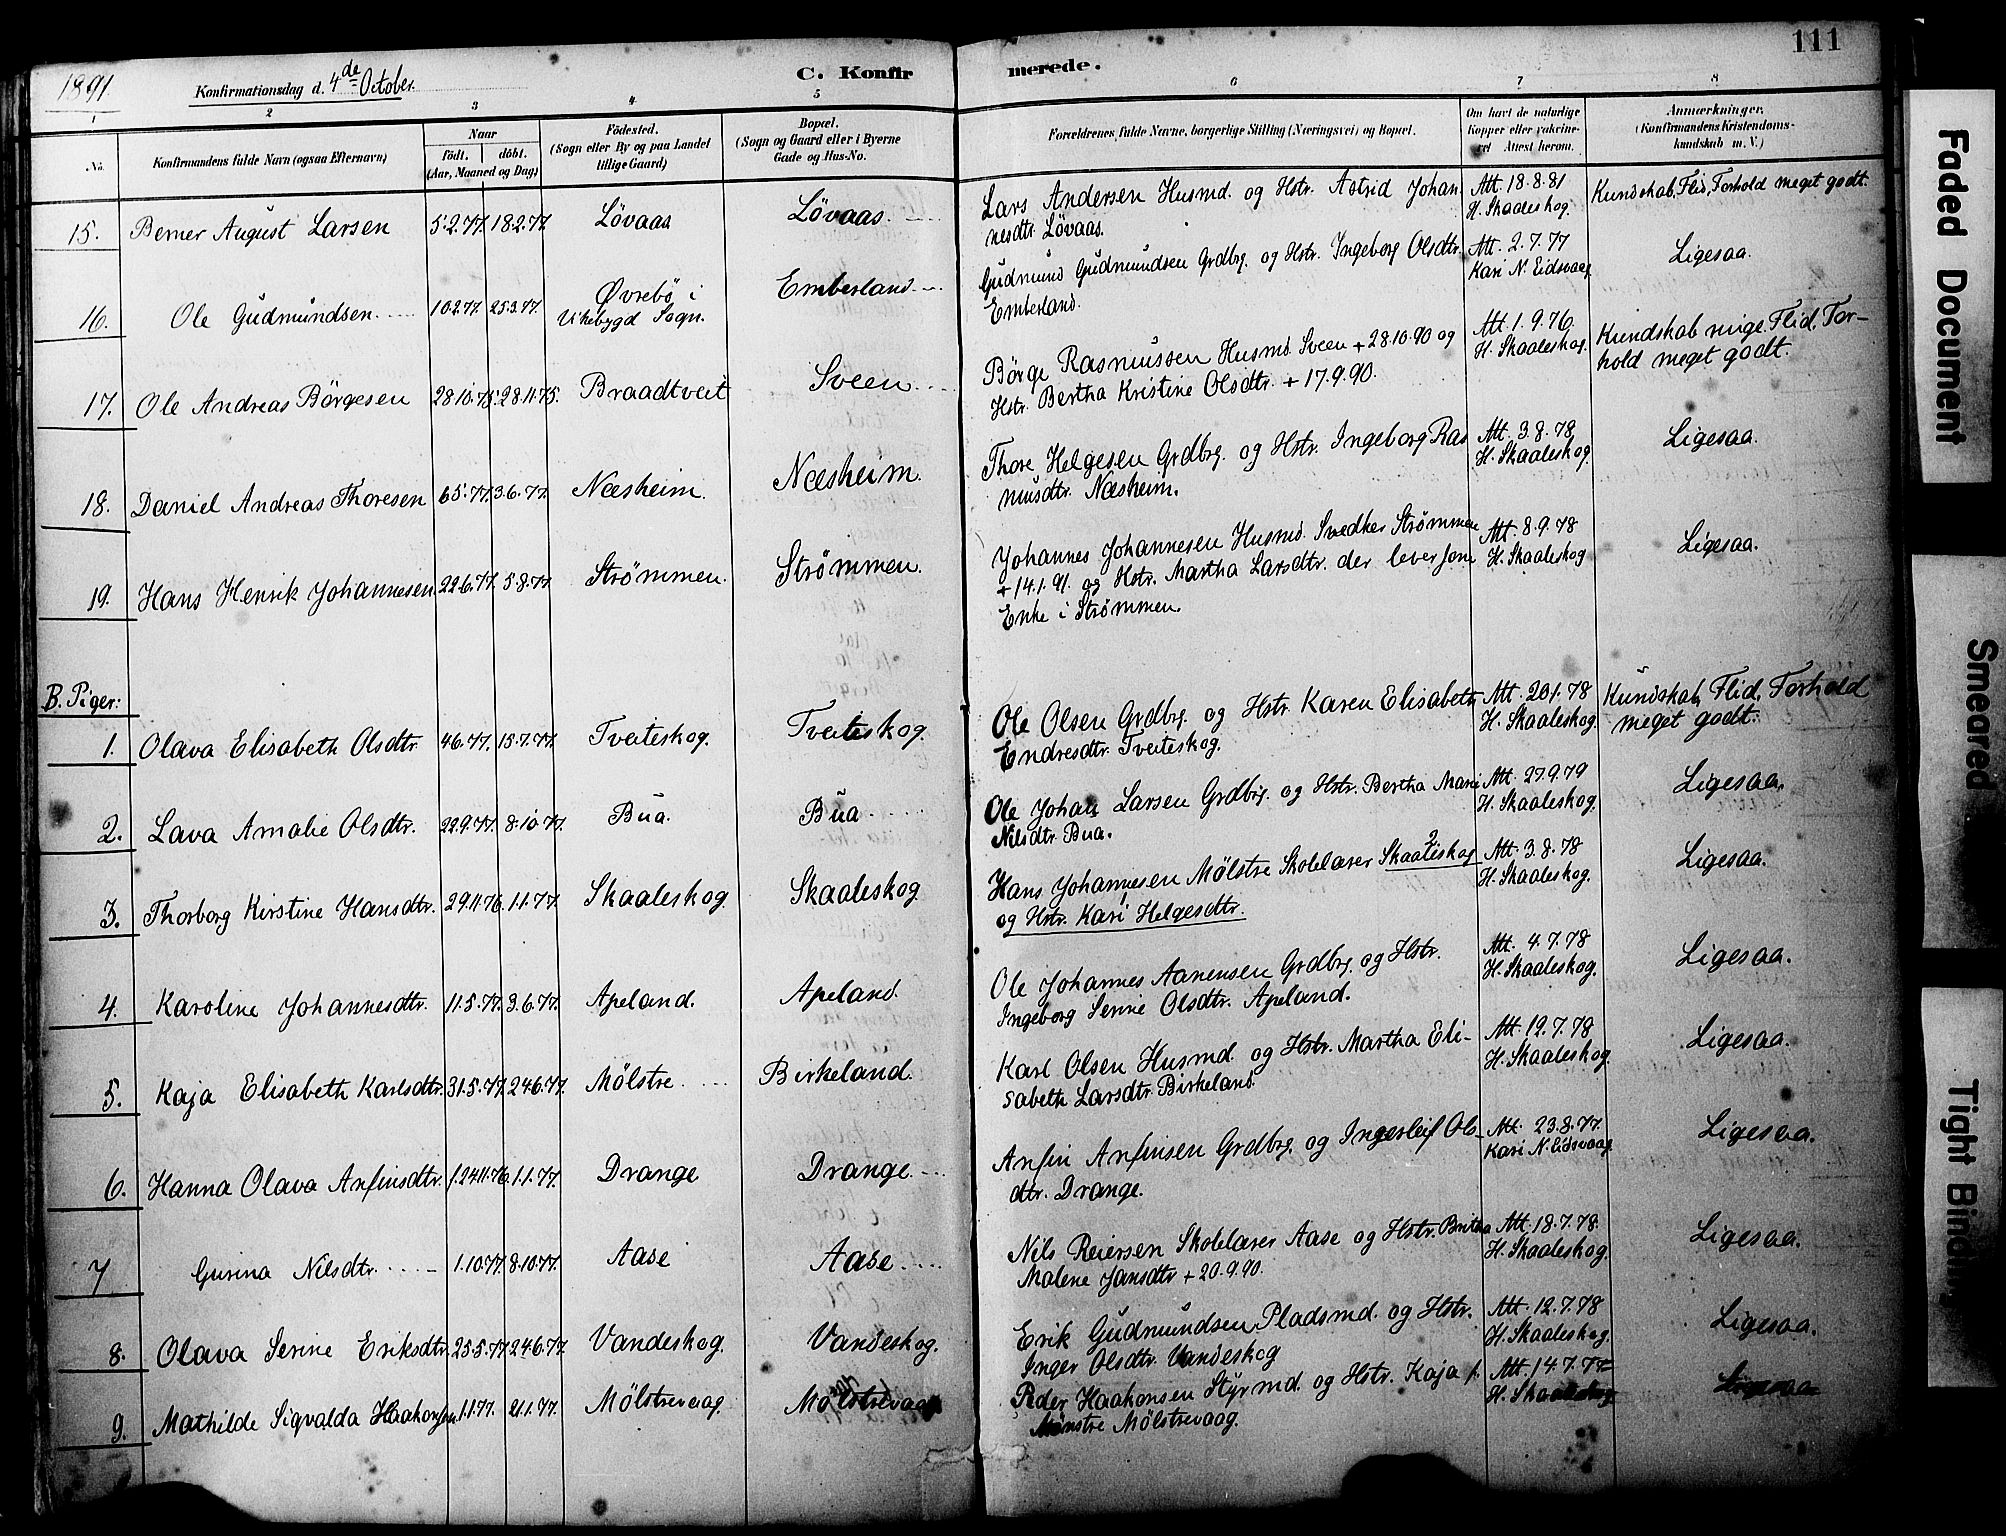 111
1891.
Konfirmationsdag d. 4de October.
C. Konfirmerede.
1 2 3 4 5 6 7 8
No.
Konfirmandens fulde Navn (ogsaa Efternavn)
Naar
födt. döbt.
(Aar, Maaned og Dag)
Födested.
(Sogn eller By og paa Landet
tillige Gaard)
Bopæl.
(Sogn og Gaard eller i Byerne
Gade og Hus-No.
Forældrenes fulde Navne, borgerlige Stilling (Næringsvei) og Bopæl.
Om havt de naturlige
Kopper eller vakcine-
ret Attest herom.
Anmærkninger.
(Konfirmandens Kristendoms-
kundskab m. V.)
15. Berner August Larsen 5.2.77. 18.2.77. Lövaas Lövaas.
Lars Andersen Husmd. og Hstr. Astrid Johan
nesdtr. Lövaas.
Att. 18.8.81
H. Skaaleskog.
Kundskab, Flid, Forhold meget godt.
16. Ole Gudmundsen 10.2.77. 25.3.77. Øvrebö i
Vikebygd Sogn.
Emberland
Gudmund Gudmundsen Grdbrg. og Hstr. Ingeborg Olsdtr.
Emberland.
Att. 2.7.77
Kari N. Eidsvaag
Ligesaa.
17. Ole Andreas Börgesen 28.10.75. 28.11.75. Braadtveit Sveen
Börge Rasmussen Husmd. Sveen + 28.10.90 og
Hstr. Bertha Kristine Olsdtr. + 17.9.90.
Att. 1.9.76.
H. Skaaleskog.
Kundskab mige. Flid, For-
hold meget godt.
18. Daniel Andreas Thoresen 6.5.77. 3.6.77. Næsheim. Næsheim.
Thore Helgesen Grdbrg. og Hstr. Ingeborg Ras
musdtr. Næsheim.
Att. 3.8.78
H. Skaaleskog
Ligesaa.
19. Hans Henrik Johannesen 22.6.77. 5.8.77. Strömmen. Strömmen.
Johannes Johannesen Husmd. Snedker Strömmen
+ 14.1.91. og Hstr. Martha Larsdtr. der lever som
Enke i Strömmen.
Att. 8.9.78
H. Skaaleskog
Ligesaa.
B. Piger:
1. Olava Elisabeth Olsdtr. 4.6.77. 15.7.77. Tveiteskog. Tveiteskog.
Ole Olsen Grdbrg. og Hstr. Karen Elisabeth
Endresdtr. Tveiteskog.
Att. 20.1.78
H. Skaaleskog.
Kundskab, Flid, Forhold
meget godt.
2. Lava Amalie Olsdtr. 22.9.77. 8.10.77. Bua. Bua
Ole Johan Larsen Grdbrg. og Hstr. Bertha Marie
Nilsdtr. Bua.
Att. 27.9.79
H. Skaaleskog.
Ligesaa.
3. Thorborg Kirstine Hansdtr. 29.11.76. 1.1.77. Skaaleskog Skaaleskog
Hans Johannesen Mölstre Skolelærer Skaaleskog
og Hstr. Kari Helgesdtr.
Att. 3.8.78
H. Skaaleskog.
Ligesaa.
4. Karoline Johannesdtr. 11.5.77. 3.6.77. Apeland. Apeland.
Ole Johannes Aanensen Grdbrg. og Hstr.
Ingeborg Serine Olsdtr. Apeland.
Att. 4.7.78
H. Skaaleskog.
Ligesaa.
5. Kaja Elisabeth Karlsdtr. 31.5.77. 24.6.77. Mölstre Birkeland.
Karl Olsen Husmd. og Hstr. Martha Eli-
sabeth Larsdtr. Birkeland.
Att. 19.7.78
H. Skaaleskog
Ligesaa.
6. Hanna Olava Anfinsdtr. 24.11.76. 1.1.77. Drange Drange
Anfin Anfinsen Grdbrg. og Ingerleif Ols-
dtr. Drange.
Att. 23.8.77.
Kari N. Eidsvaag
Ligesaa.
7 Gurina Nilsdtr. 1.10.77. 8.10.77. Aase Aase
Nils Reiersen Skolelærer Aase og Hstr. Britha
Malene Jansdtr + 20.9.90.
Att. 18.7.78.
H. Skaaleskog.
Ligesaa.
8. Olava Serine Eriksdtr. 25.5.77. 24.6.77. Vandeskog. Vandeskog.
Erik Gudmundsen Pladsmd. og Hstr.
Inger Olsdtr. Vandeskog
Att. 12.7.78
H. Skaaleskog.
Ligesaa.
9. Mathilde Sigvalda Haakonsen 1.1.77. 21.1.77. Mölstrevaag. Mölstrevaag
Peder Haakonsen Styrmd. og Hstr. Kaja
Mönstre Mölstrevaag.
Att. 14.7.77
H. Skaaleskog
Ligesaa
Faded Document
Smeared
Tight Binding